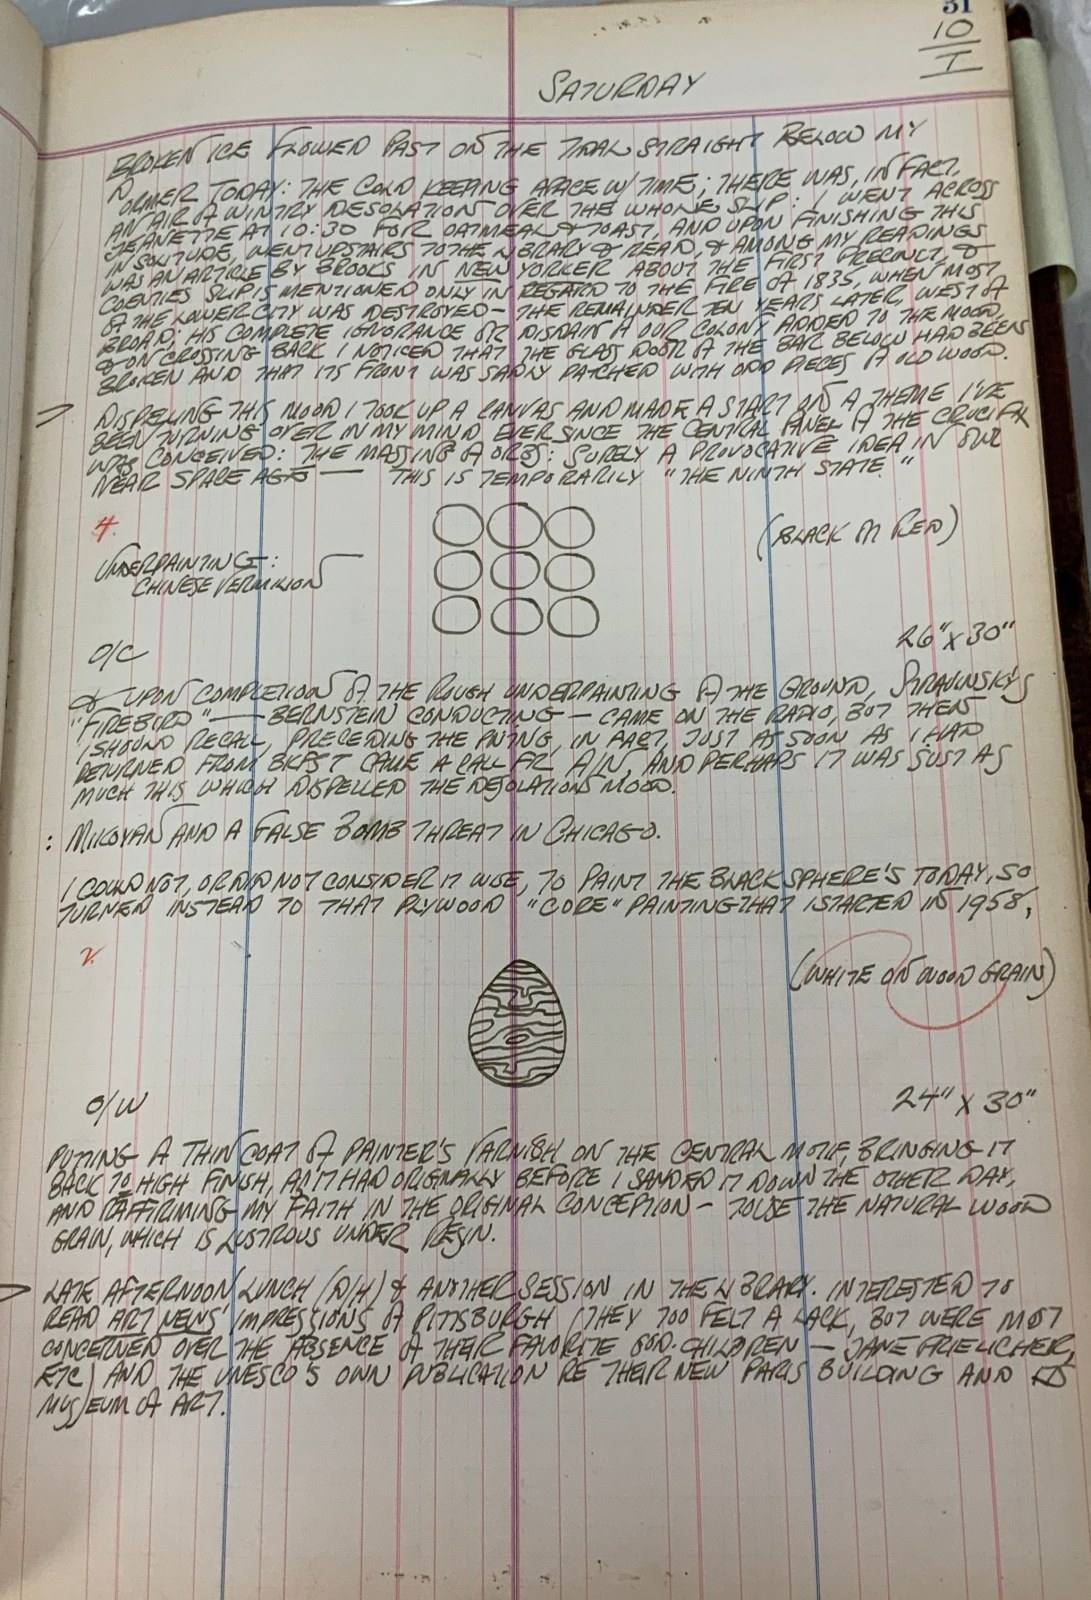 51
10
I
SATURDAY
BROKEN ICE FLOWED PAST ON THE TIDAL STRAIGHT BELOW MY
DORMER TODAY: THE COLD KEEPING APACE W/ TIME; THERE WAS, IN FACT,
AN AIR OF WINTRY DESOLATION OVER THE WHOLE SLIP: I WENT ACROSS
JEANETTE AT 10:30 FOR OATMEAL & TOAST, AND UPON FINISHING THIS
IN SOLITUDE, WENT UPSTAIRS TO THE LIBRARY & READ, & AMONG MY READINGS
WAS AN ARTICLE BY BROOKS IN NEW YORKER ABOUT THE FIRST PRECINCT, &
COENTIES SLIP IS MENTIONED ONLY IN REGARD TO THE FIRE OF 1835, WHEN MOST
OF THE LOWER CITY WAS DESTROYED — THE REMAINDER TEN YEARS LATER, WEST OF
BROAD; HIS COMPLETE IGNORANCE OR DISDAIN OF OUR COLONY ADDED TO THE MOOD,
& ON CROSSING BACK I NOTICED THAT THE GLASS DOOR OF THE BAR BELOW HAD BEEN
BROKEN AND THAT ITS FRONT WAS SADLY PATCHED WITH ODD PIECES OF OLD WOOD.
DISPELLING THIS MOOD I TOOK UP A CANVAS AND MADE A START ON A THEME I'VE
BEEN TURNING OVER IN MY MIND EVER SINCE THE CENTRAL PANEL OF THE CRUCIFIX
WAS CONCEIVED: THE MASSING OF ORBS: SURELY A PROVOCATIVE IDEA IN OUR
NEAR SPACE AGE — THIS IS TEMPORARILY "THE NINTH STATE."
4.
(BLACK ON RED)
UNDERPAINTING:
CHINESE VERMILION
O/C
26" X 30"
& UPON COMPLETION OF THE ROUGH UNDERPAINTING OF THE GROUND, STRAVINSKY'S
"FIREBIRD" — BERNSTEIN CONDUCTING — CAME ON THE RADIO, BUT THEN
I SHOULD RECALL, PRECEDING THE PNTNG, IN FACT, JUST AS SOON AS I HAD
RETURNED FROM BKFST CAME A CALL FR A/N, AND PERHAPS IT WAS JUST AS
MUCH THIS WHICH DISPELLED THE DESOLATION MOOD.
: MIKOYAN AND A FALSE BOMB THREAT IN CHICAGO.
I COULD NOT, OR DID NOT CONSIDER IT WISE, TO PAINT THE BLACK SPHERE'S TODAY, SO
TURNED INSTEAD TO THAT PLYWOOD "CORE" PAINTING THAT I STARTED IN 1958,
2.
(WHITE ON WOOD GRAIN)
O/W
24" X 30"
PUTTING A THIN COAT OF PAINTER'S VARNISH ON THE CENTRAL MOTIF, BRINGING IT
BACK TO HIGH FINISH, AS IT HAD ORIGINALLY BEFORE I SANDED IT DOWN THE OTHER DAY,
AND RAFFIRIMING MY FAITH IN THE ORIGINAL CONCEPTION — TO USE THE NATURAL WOOD
GRAIN, WHICH IS LUSTROUS UNDER RESIN.
LATE AFTERNOON LUNCH (D/H) & ANOTHER SESSION IN THE LIBRARY. INTERESTED TO
READ ART NEWS' IMPRESSIONS OF PITTSBURGH (THEY TOO FELT A LACK, BUT WERE MOST
CONCERNED OVER THE ABSENCE OF THEIR FAVORITE GOD-CHILDREN — JANE FRIELICHER,
ETC) AND THE UNESCO'S OWN PUBLICATION RE THEIR NEW PARIS BUILDING AND ITS
MUSSEUM OF ART.